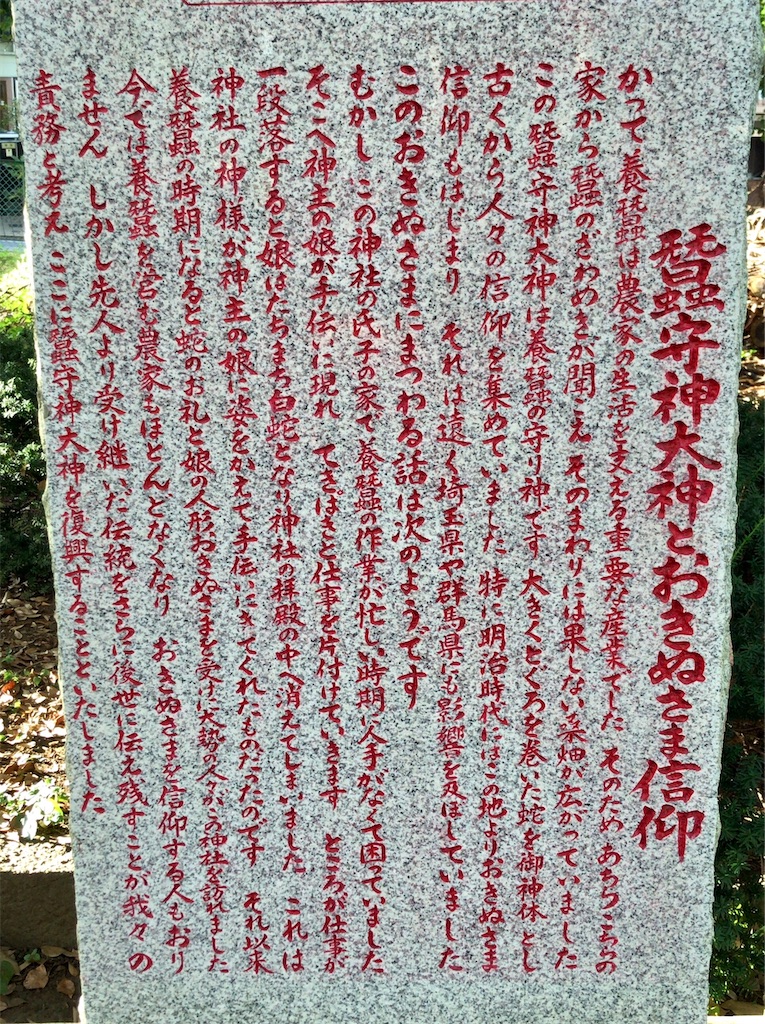 蠶守神大神とおきぬさま信仰
かって養蠶は農家の生活を支える重要な産業でした そのため あちらこちらの
家から蠶のざわめきが聞こえ そのまわりには果しない桑畑が広がっていました
この蠶守神大神は養蠶の守り神です 大きくとぐろを巻いた蛇を御神体とし
古くから人々の信仰を集めていました 特に明治時代にはこの地よりおきぬさま
信仰もはじまり それは遠く埼玉県や群馬県にも影響を及ぼしていました
このおきぬさまにまつわる話は次のようです
むかし この神社の氏子の家で 養蠶の作業が忙しい時期に人手がなくて困っていました
そこへ神主の娘が手伝いに現れ てきぱきと仕事を片付けていきます ところが仕事が
一段落すると娘はたちまち白蛇となり神社の拝殿の中へ消えてしまいました これは
神社の神様が神主の娘に姿をかえて手伝いにきてくれたものだったのです それ以来
養蠶の時期になると蛇のお礼と娘の人形おきぬさまを受けに大勢の人々がこの神社を訪れました
今では養蠶を営む農家もほとんどなくなり おきぬさまを信仰する人もおり
ません しかし先人より受け継いだ伝統をさらに後世に伝え残すことが我々の
責務と考え ここに蠶守神大神を復興することといたしました